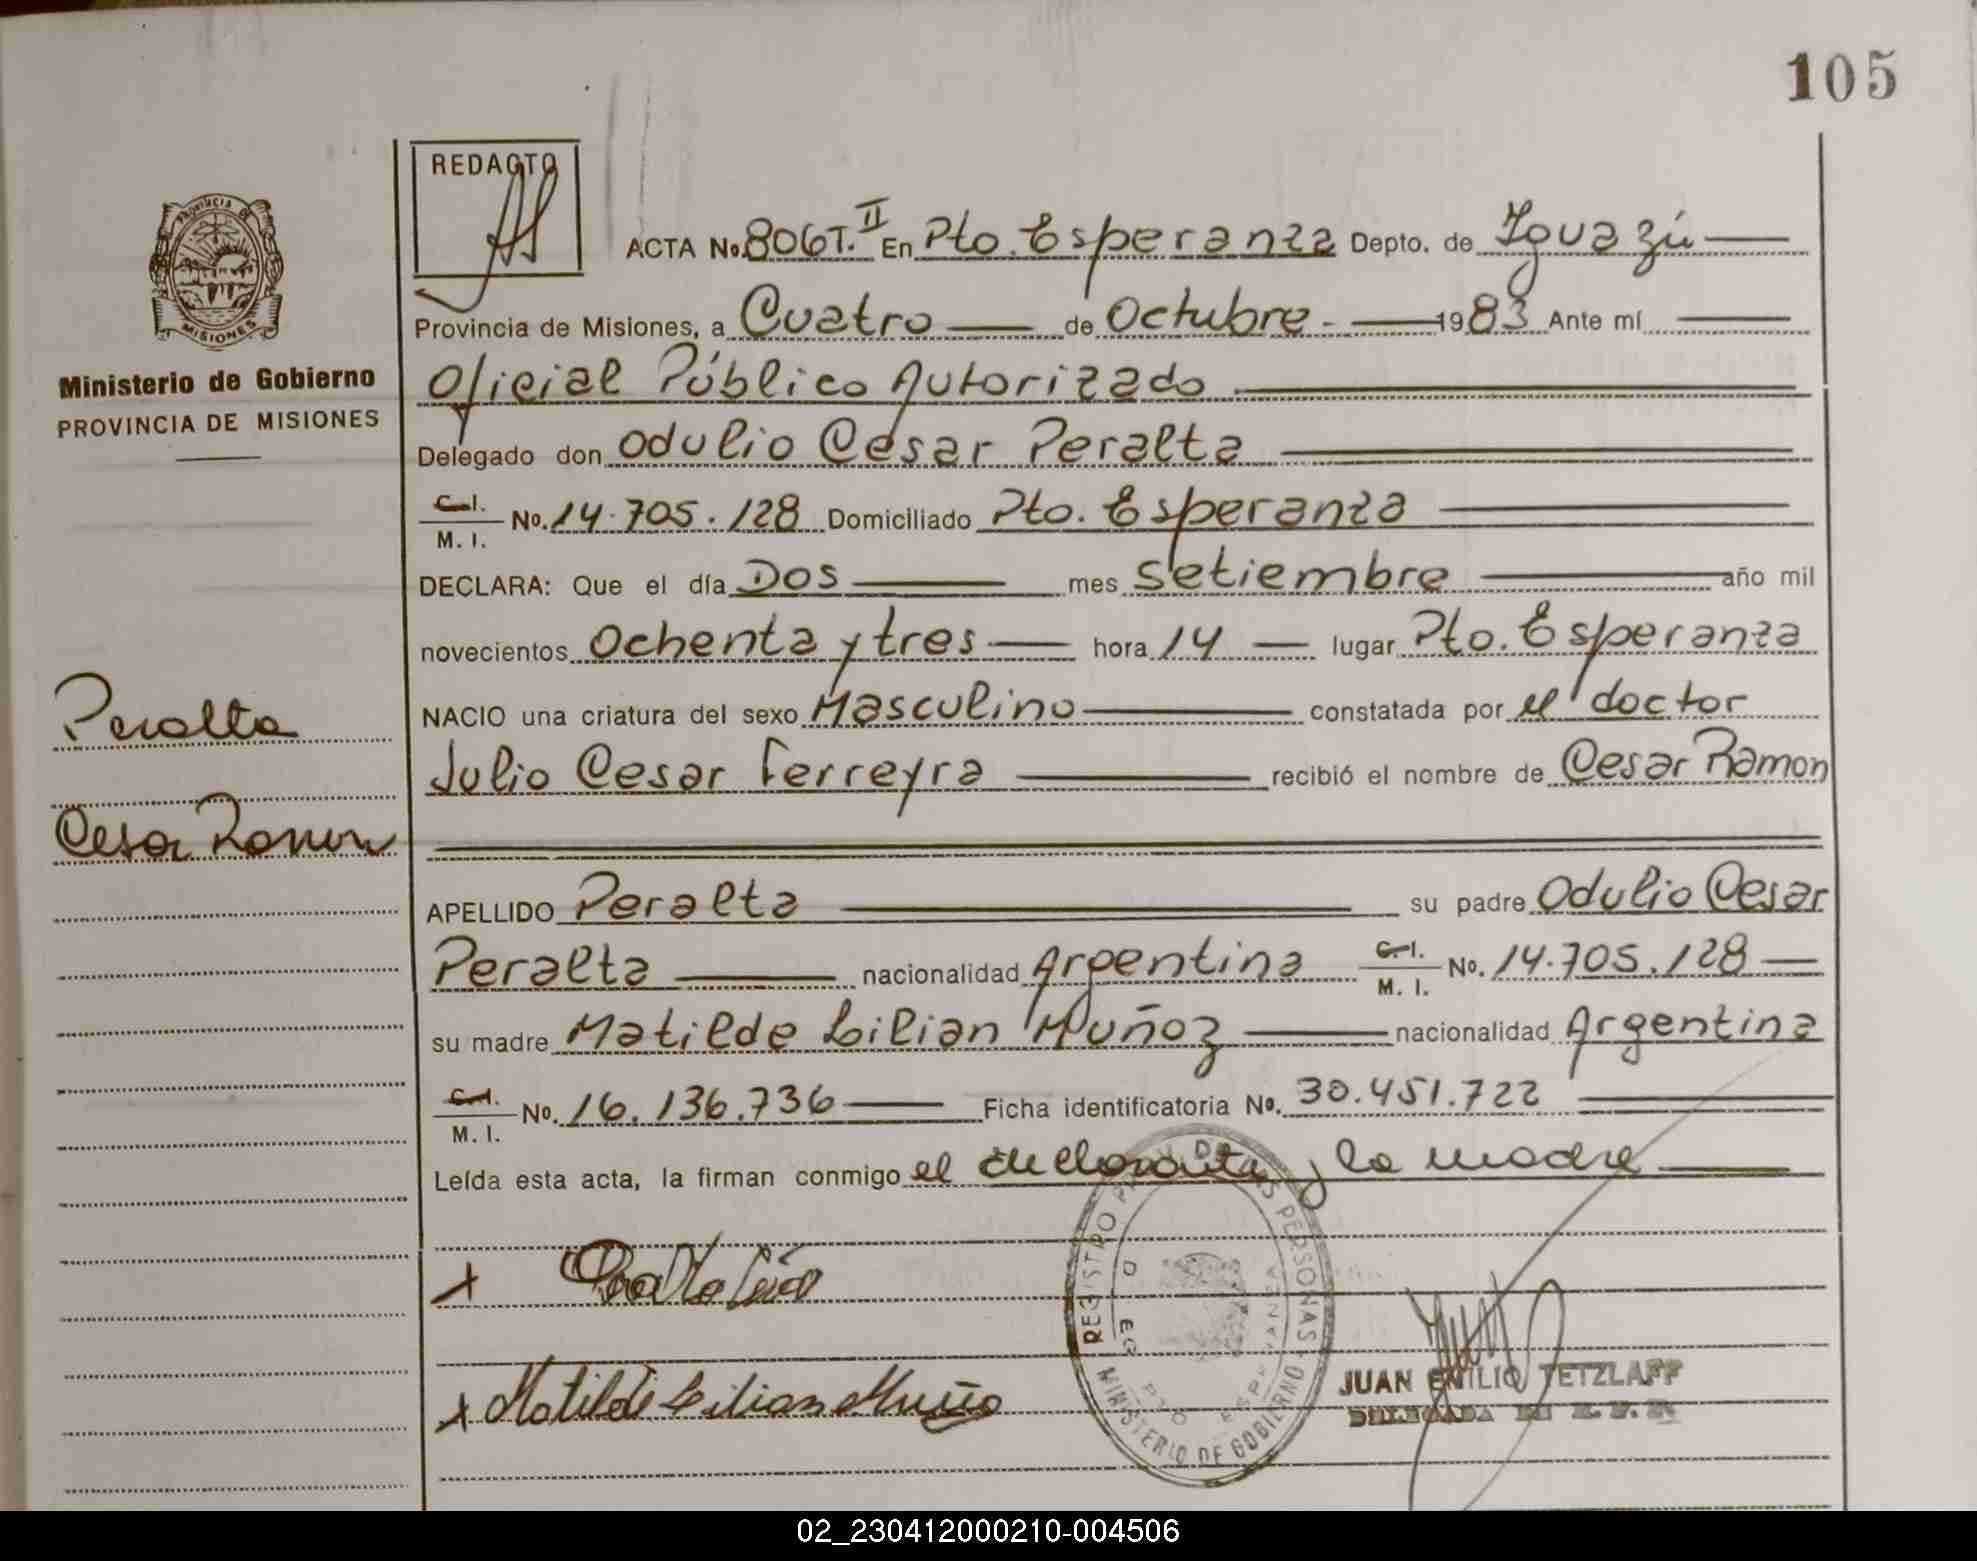 105
REDACTO
PROVINCIA DE
MISIONES
Ministerio de Gobierno
PROVINCIA DE MISIONES
ACTA No. 806 T. II En Pto. Esperanza Depto. de Iguazú
Provincia de Misiones, a Cuatro de Octubre - 1983 Ante mí
Oficial Público Autorizado
Delegado don Odulio Cesar Peralta
C.I. M. I. No. 14.705.128 Domiciliado Pto. Esperanza
DECLARA: Que el día Dos mes Setiembre año mil
novecientos Ochenta y tres hora 14 lugar Pto. Esperanza
NACIO una criatura del sexo Masculino constatada por el doctor
Julio Cesar Ferreyra recibió el nombre de Cesar Ramon
Peralta
Cesar Ramon
APELLIDO Peralta su padre Odulio Cesar
Peralta nacionalidad Argentina C.I. M. I. No. 14.705.128
su madre Matilde Lilian Muñoz nacionalidad Argentina
C.I. M. I. No. 16.136.736 Ficha identificatoria No. 30.451.722
Leída esta acta, la firman conmigo el declarante y la madre
x
x Matilde Lilian Muñoz
REGISTRO DE LAS PERSONAS
MINISTERIO DE GOBIERNO
PTO ESPERANZA
JUAN EMILIO TETZLAFF
02_230412000210-004506